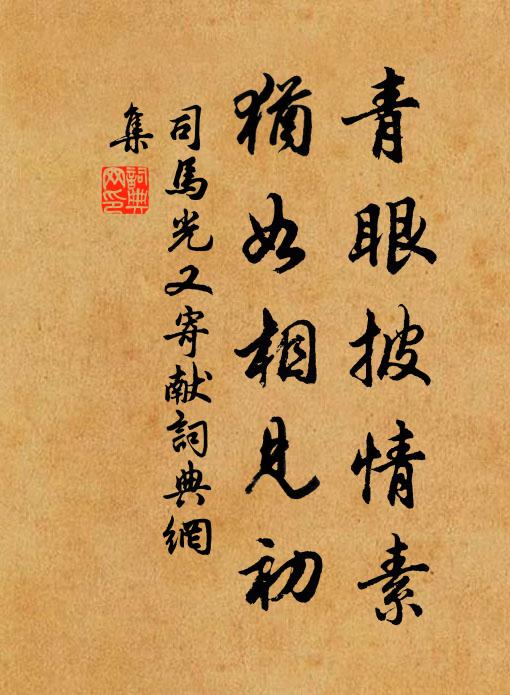 青眼披情素
猶如相見初
司馬光又寄献詞典網
集
詞典
网印